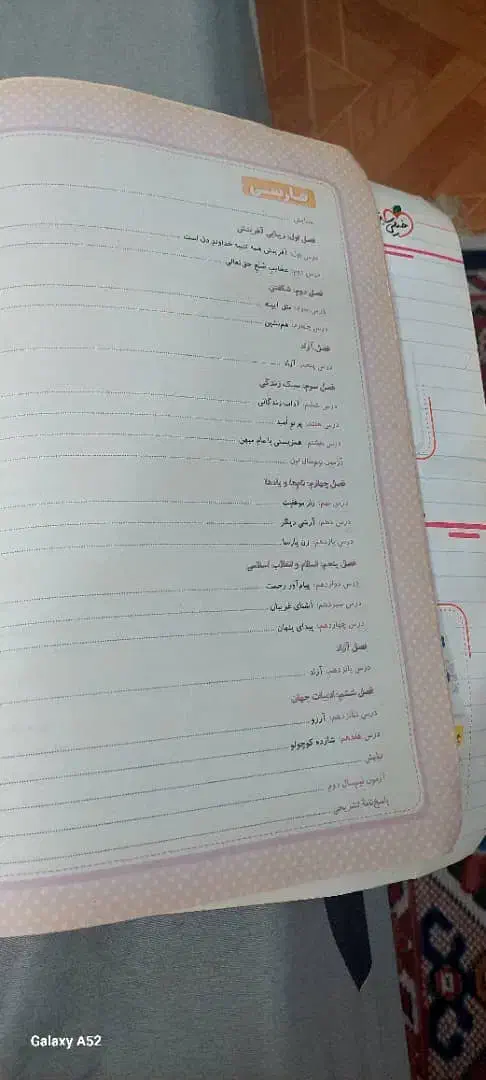 فارسی
ستایش
فصل اول: زیبایی آفرینش
درس اول: آفرینش همه تنبیه خداوند دل است
درس دوم: عجایب صنع حق تعالی
فصل دوم: شکفتن
درس سوم: مثل آیینه
درس چهارم: هم‌نشین
فصل آزاد
درس پنجم: آزاد
فصل سوم: سبک زندگی
درس ششم: آداب زندگانی
درس هفتم: پرتو امید
درس هشتم: همزیستی با مام میهن
آزمون نیم‌سال اول
فصل چهارم: نام‌ها و یادها
درس نهم: راز موفقیت
درس دهم: آرشی دیگر
درس یازدهم: زن پارسا
فصل پنجم: اسلام و انقلاب اسلامی
درس دوازدهم: پیام‌آور رحمت
درس سیزدهم: آشنای غریبان
درس چهاردهم: پیدای پنهان
فصل آزاد
درس پانزدهم: آزاد
فصل ششم: ادبیات جهان
درس شانزدهم: آرزو
درس هفدهم: شازده کوچولو
نیایش
آزمون نیم‌سال دوم
پاسخ‌نامهٔ تشریحی
Galaxy A52